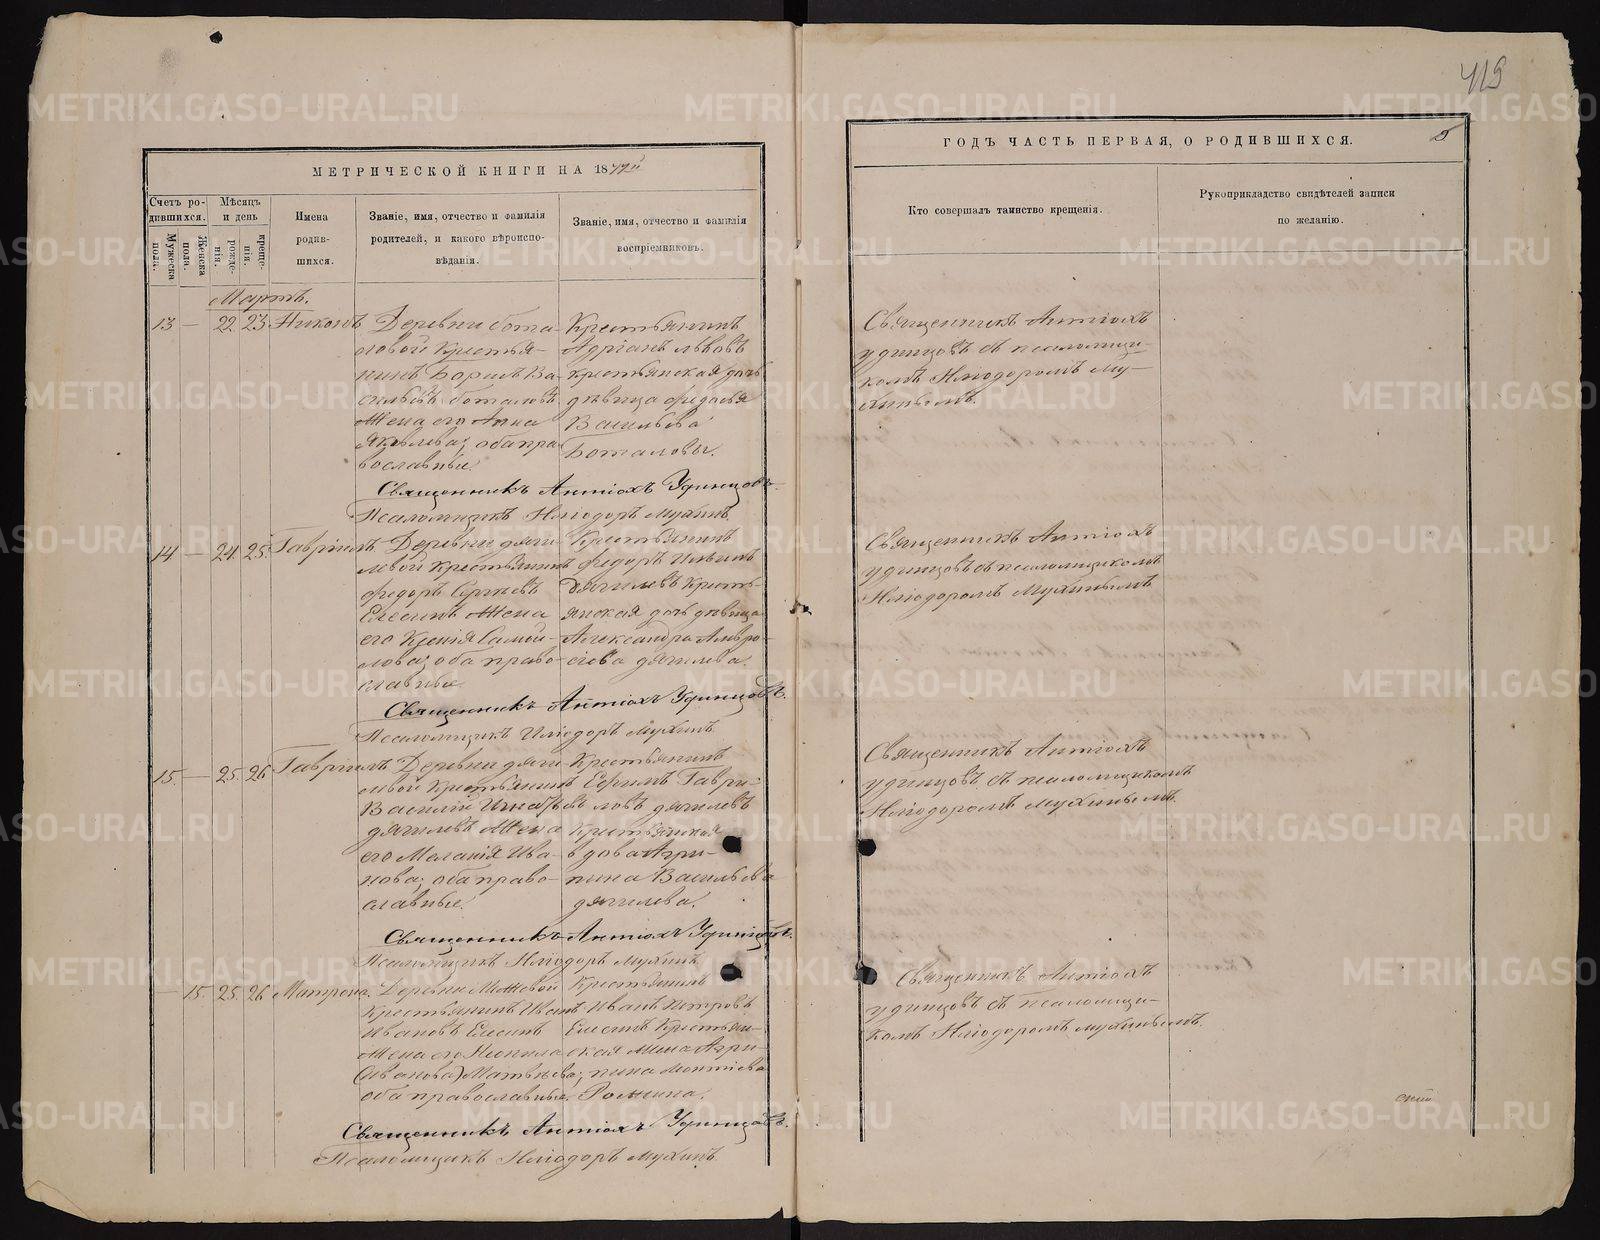 419
МЕТРИЧЕСКОЙ КНИГИ НА 1877й
ГОДЪ ЧАСТЬ ПЕРВАЯ, О РОДИВШИХСЯ.
5
Счетъ родившихся.
Мужеска пола.
Женска пола.
Мѣсяцъ и день
рожденія.
крещенія.
Имена родившихся.
Званіе, имя, отчество и фамилія
родителей, и какого вѣроиспо-
вѣданія.
Званіе, имя, отчество и фамилія
воспріемниковъ.
Кто совершалъ таинство крещенія.
Рукоприкладство свидѣтелей записи
по желанію.
Мартъ.
13 — 22 23 Никонъ
Деревни Бота-
ловой Крестья-
нинъ Борисъ Ва-
сильевъ Боталовъ
Жена его Анна
Яковлева; оба пра-
вославные.
Крестьянинъ
Адріанъ Львовъ
Крестьянская дочь
дѣвица Ѳедосья
Васильева
Боталовы.
Священникъ Антіохъ
Удинцовъ съ псаломщи-
комъ Иліодоромъ Му-
хинымъ.
Священникъ Антіохъ Удинцовъ.
Псаломщикъ Иліодоръ Мухинъ
14 — 24 25 Гавріилъ
Деревни Дяги-
левой Крестьянинъ
Ѳедоръ Сергѣевъ
Елесинъ Жена
его Ксенія Самой-
лова; оба право-
славные
Крестьянинъ
Ѳедоръ Ильинъ
Дягилевъ Кресть-
янская дочь дѣвица
Александра Амвро-
сіева Дягилева.
Священникъ Антіохъ
Удинцовъ съ псаломщикомъ
Иліодоромъ Мухинымъ
Священникъ Антіохъ Удинцовъ.
Псаломщикъ Иліодоръ Мухинъ
15. — 25. 26 Гавріилъ
Деревни Дяги-
левой Крестьянинъ
Василій Игнатьевъ
Дягилевъ Жена
его Меланія Ива-
нова; оба право-
славные.
Крестьянинъ
Ефимъ Гаври-
ловъ Дягилевъ
Крестьянская
вдова Агри-
пина Васильева
Дягилева.
Священникъ Антіохъ
Удинцовъ съ псаломщикомъ
Иліодоромъ Мухинымъ.
Священникъ Антіохъ Удинцовъ.
Псаломщикъ Иліодоръ Мухинъ
— 15. 25. 26 Матрона.
Деревни Межевой
Крестьянинъ Иванъ
Ивановъ Елесинъ
Жена его Неонила
(Иванова) Матвѣева;
оба православные.
Крестьянинъ
Иванъ Петровъ
Елесинъ Крестьян-
ская жена Агри-
пина Монтіева
Рожина.
Священникъ Антіохъ
Удинцовъ съ псаломщи-
комъ Иліодоромъ Мухинымъ.
Священникъ Антіохъ Удинцовъ.
Псаломщикъ Иліодоръ Мухинъ
METRIKI.GASO-URAL.RU